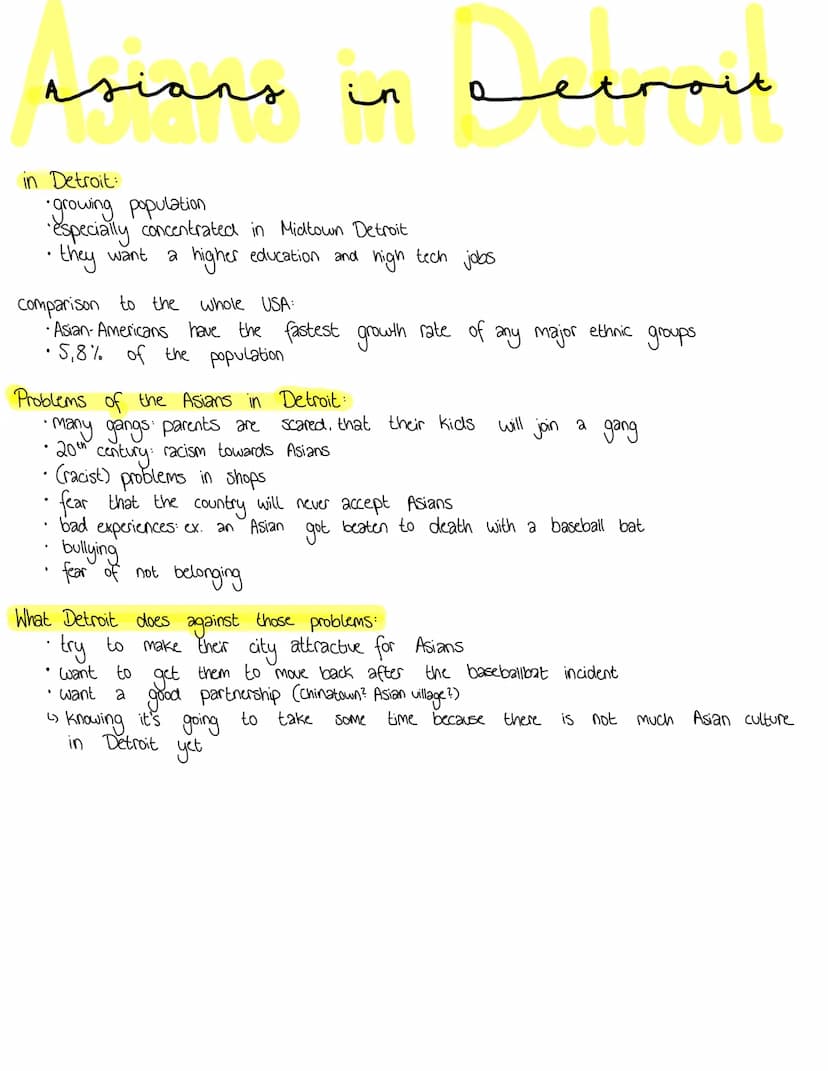 Asians in Detroit
in Detroit:
• growing population
• especially concentrated in Midtown Detroit
• they want a higher education and high tech jobs
comparison to the whole USA:
• Asian-Americans have the fastest growth rate of any major ethnic groups
• 5,8% of the population
Problems of the Asians in Detroit:
• many gangs: parents are scared, that their kids will join a gang
• 20th century: racism towards Asians
• (racist) problems in shops
• fear that the country will never accept Asians
• bad experiences: ex. an Asian got beaten to death with a baseball bat
• bullying
• fear of not belonging
What Detroit does against those problems:
• try to make their city attractive for Asians
• want to get them to move back after the baseballbat incident
• want a good partnership (Chinatown? Asian village?)
↳ knowing it's going to take some time because there is not much Asian culture
in Detroit yet